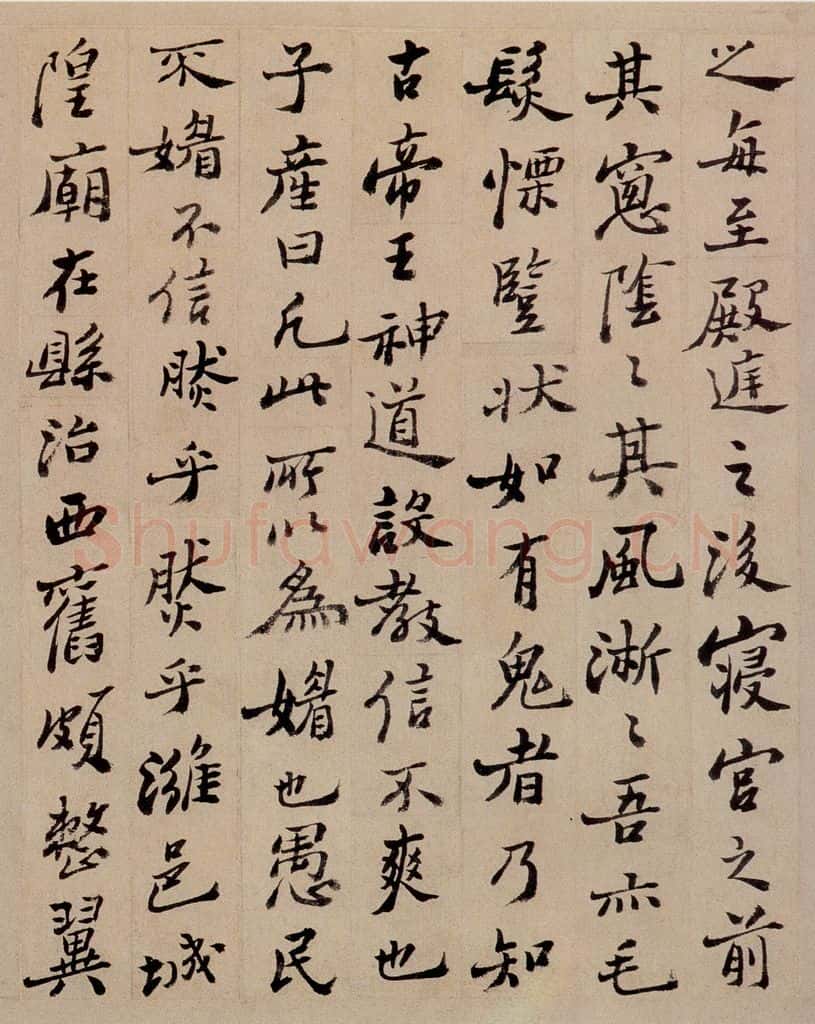 之每至殿庭之後寢宮之前
其窻陰〻其風淅〻吾亦毛
髮慄豎狀如有鬼者乃知
古帝王神道設教信不爽也
子產曰凡此所以為媚也愚民
不媚不信然乎然乎濰邑城
隍廟在縣治西舊頗整翼
Shufawang.CN